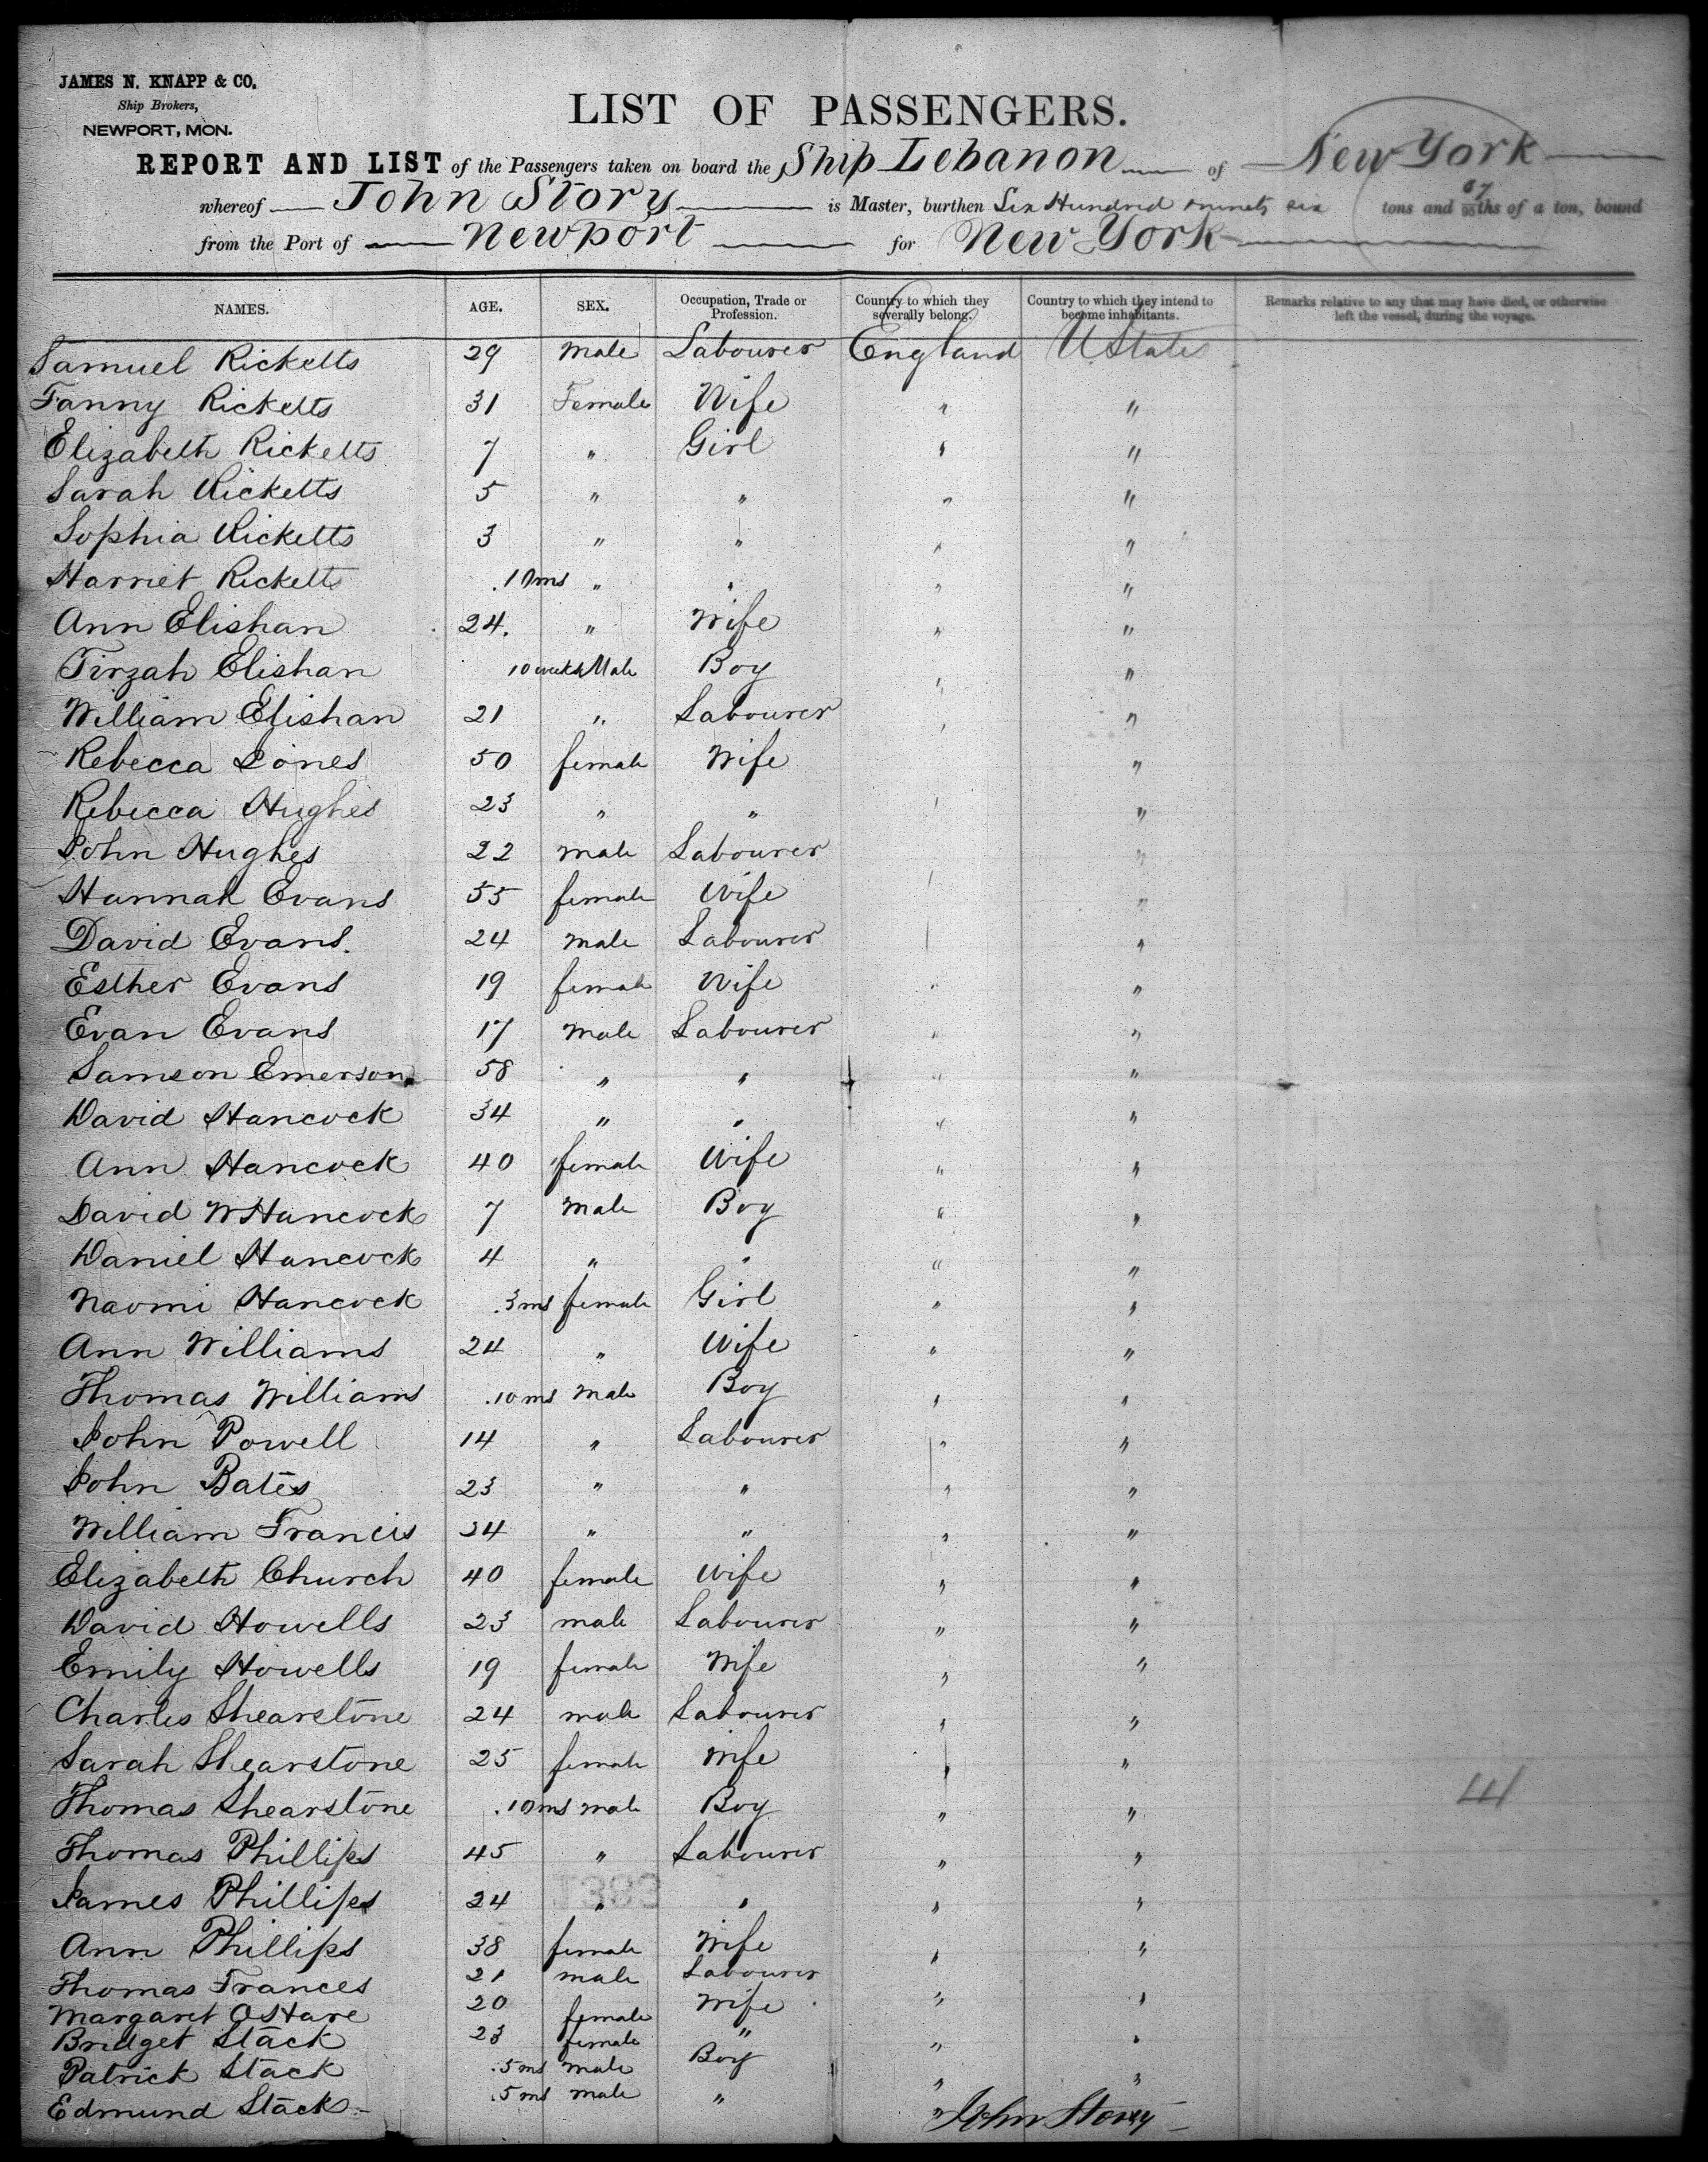 JAMES N. KNAPP & CO.
Ship Brokers,
NEWPORT, MON.
LIST OF PASSENGERS.
REPORT AND LIST of the Passengers taken on board the Ship Lebanon of New York
whereof John Story is Master, burthen Six Hundred ninety six tons and 67/95ths of a ton, bound
from the Port of Newport for New York
NAMES. AGE. SEX. Occupation, Trade or Profession. Country to which they severally belong. Country to which they intend to become inhabitants. Remarks relative to any that may have died, or otherwise left the vessel, during the voyage.
Samuel Ricketts 29 Male Labourer England U States
Fanny Ricketts 31 Female Wife " "
Elizabeth Ricketts 7 " Girl " "
Sarah Ricketts 5 " " " "
Sophia Ricketts 3 " " " "
Harriet Ricketts .10ms " " " "
Ann Elishan 24. " Wife " "
Tirzah Elishan 10 weeks Male Boy " "
William Elishan 21 " Labourer " "
Rebecca Jones 50 female Wife "
Rebecca Hughes 23 " " " "
John Hughes 22 male Labourer "
Hannah Evans 55 female Wife " "
David Evans. 24 male Labourer "
Esther Evans 19 female Wife " "
Evan Evans 17 male Labourer " "
Samson Emerson 58 " " " "
David Hancock 34 " " " "
Ann Hancock 40 female Wife " "
David W Hancock 7 Male Boy " "
Daniel Hancock 4 " " " "
Naomi Hancock .3ms female Girl " "
Ann Williams 24 " Wife " "
Thomas Williams .10ms Male Boy " "
John Powell 14 " Labourer " "
John Bates 23 " " " "
William Francis 24 " " " "
Elizabeth Church 40 female Wife " "
David Howells 23 male Labourer " "
Emily Howells 19 female Wife " "
Charles Shearstone 24 male Labourer " "
Sarah Shearstone 25 female Wife " "
Thomas Shearstone .10ms male Boy " "
Thomas Phillips 45 " Labourer " "
James Phillips 24 " " " "
Ann Phillips 38 female Wife " "
Thomas Frances 21 male Labourer
Margaret O Hare 20 female Wife " "
Bridget Stack 23 female " " "
Patrick Stack .5ms male Boy " "
Edmund Stack .5ms male " "
John Story